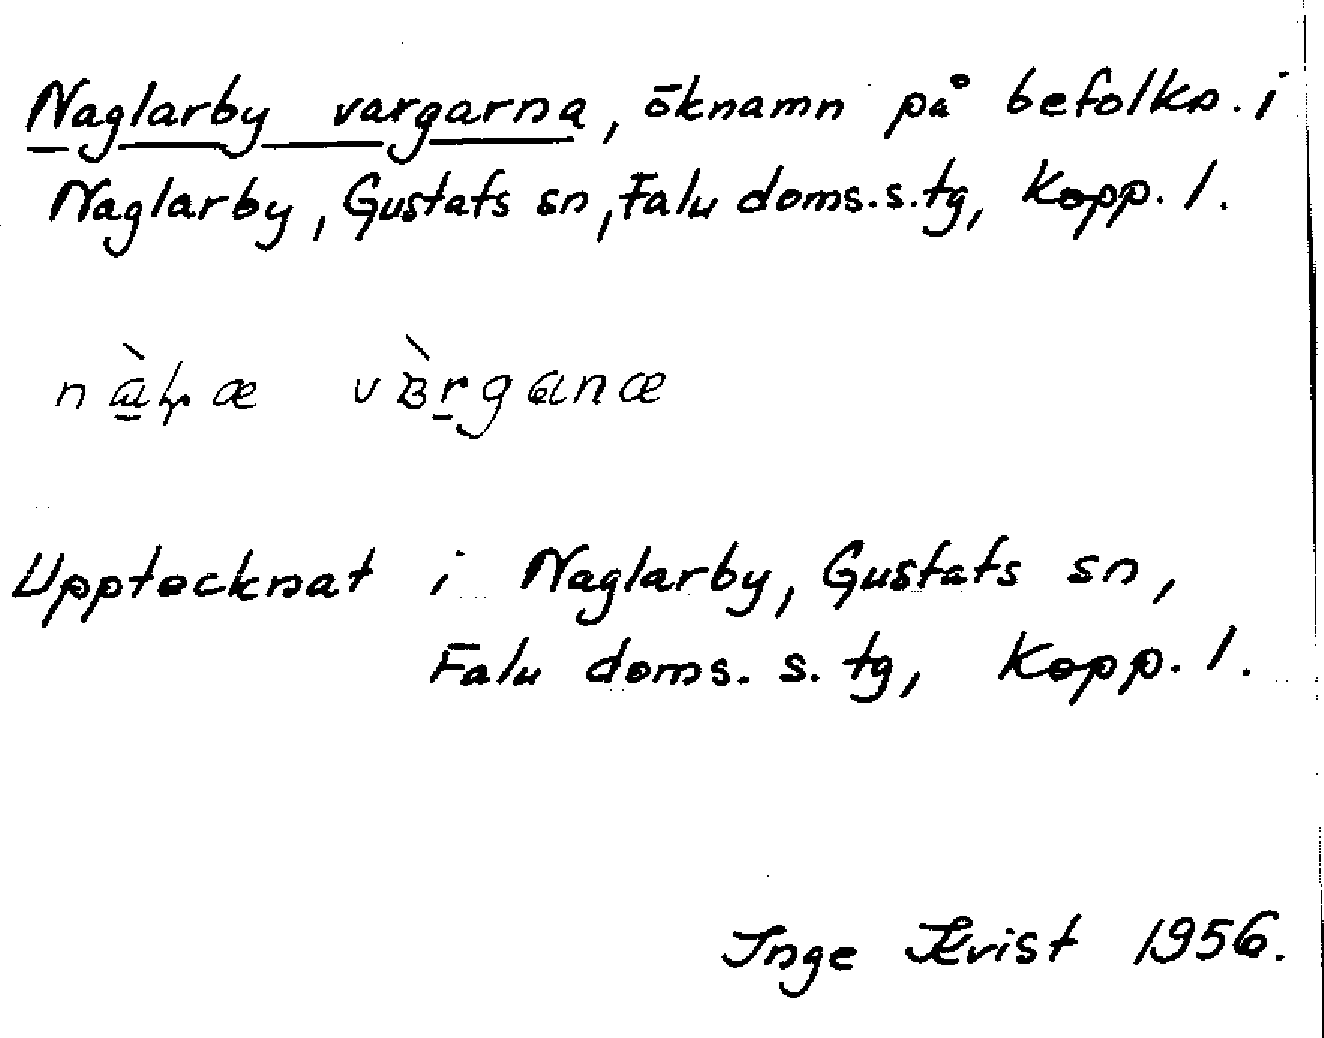 Naglarby vargarna, öknamn på befolkn. i
Naglarby, Gustafs sn, Falu doms.s.tg, Kopp. l.
Upptecknat i Naglarby, Gustafs sn,
Falu doms. s. tg, Kopp. l.
Inge Kvist 1956.